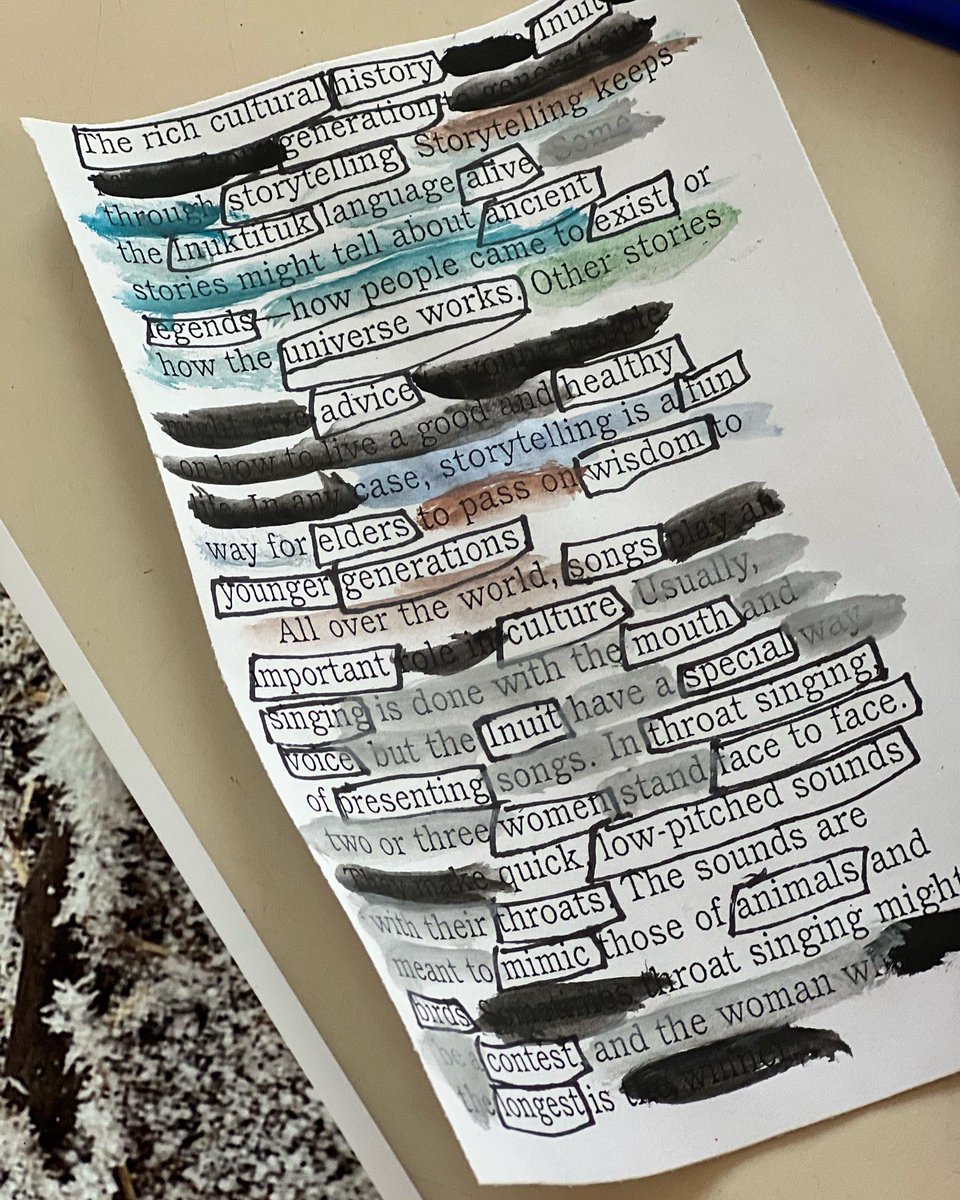 The rich cultural history Inuit
generation to generation
through storytelling. Storytelling keeps
the Inuktituk language alive. Some
stories might tell about ancient
legends—how people came to exist or
how the universe works. Other stories
might give advice to young people
on how to live a good and healthy
life. In any case, storytelling is a fun
way for elders to pass on wisdom to
younger generations
All over the world, songs play an
important role in culture. Usually,
singing is done with the mouth and
voice, but the Inuit have a special way
of presenting songs. In throat singing,
two or three women stand face to face.
They make quick, low-pitched sounds
with their throats. The sounds are
meant to mimic those of animals and
birds. Sometimes throat singing might
be a contest, and the woman
the longest is the winner.